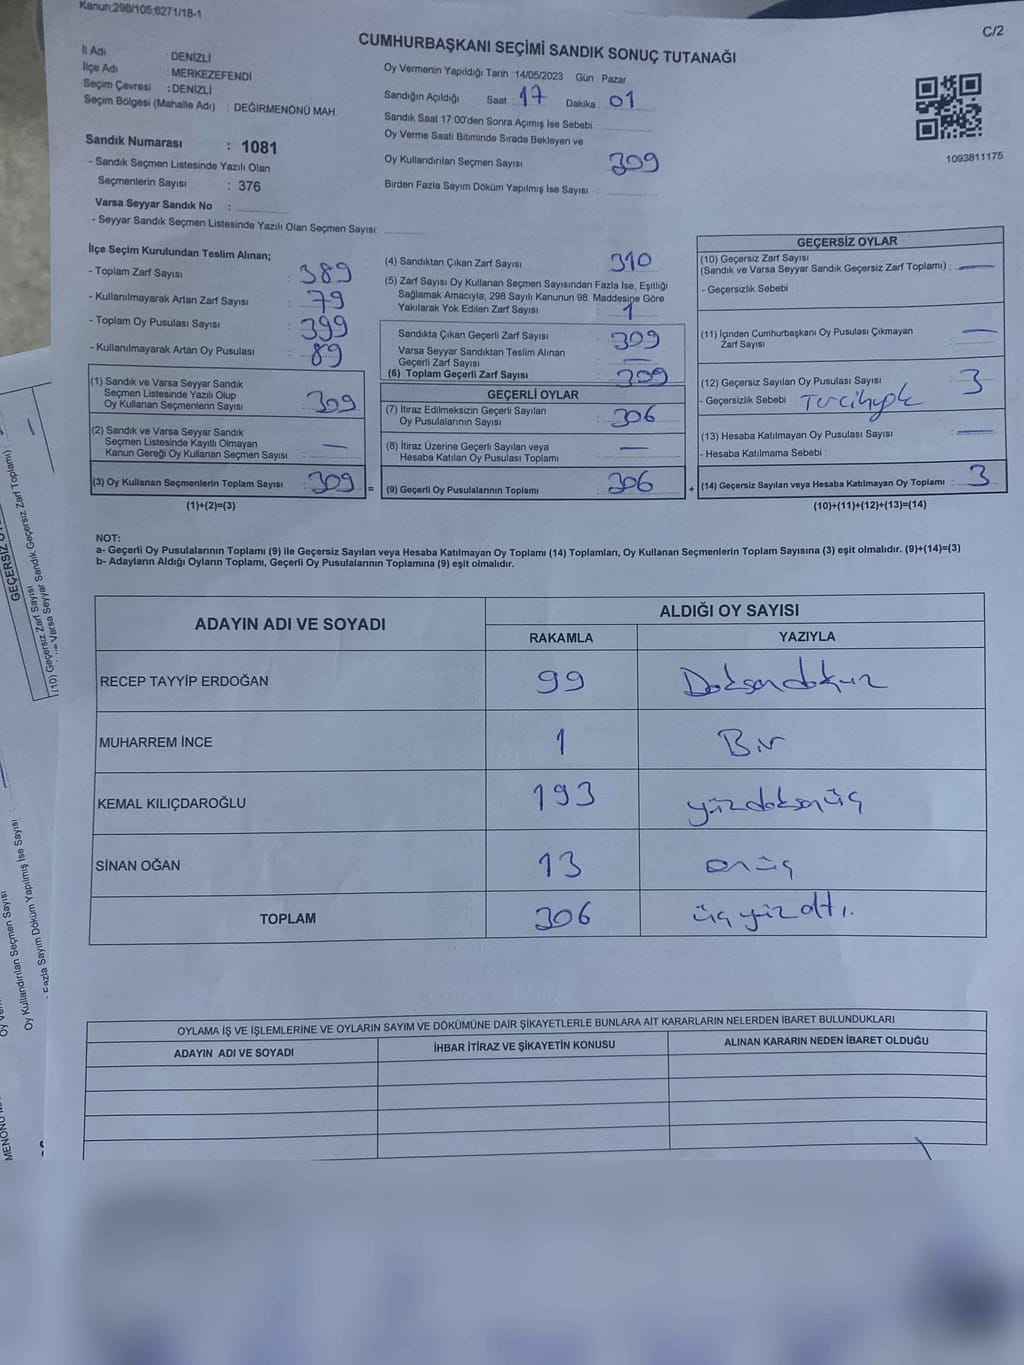 Kanun;298/105;6271/18-1
C/2
CUMHURBAŞKANI SEÇİMİ SANDIK SONUÇ TUTANAĞI
İl Adı : DENİZLİ
İlçe Adı : MERKEZEFENDİ
Seçim Çevresi : DENİZLİ
Seçim Bölgesi (Mahalle Adı) : DEĞİRMENÖNÜ MAH.
Sandık Numarası : 1081
- Sandık Seçmen Listesinde Yazılı Olan
Seçmenlerin Sayısı : 376
Varsa Seyyar Sandık No :
- Seyyar Sandık Seçmen Listesinde Yazılı Olan Seçmen Sayısı:
Oy Vermenin Yapıldığı Tarih : 14/05/2023 Gün : Pazar
Sandığın Açıldığı Saat : 17 Dakika : 01
Sandık Saat 17:00'den Sonra Açımış İse Sebebi
Oy Verme Saati Bitiminde Sırada Bekleyen ve
Oy Kullandırılan Seçmen Sayısı 309
Birden Fazla Sayım Döküm Yapılmış İse Sayısı :
1093811175
İlçe Seçim Kurulundan Teslim Alınan;
- Toplam Zarf Sayısı : 389
- Kullanılmayarak Artan Zarf Sayısı : 79
- Toplam Oy Pusulası Sayısı : 399
- Kullanılmayarak Artan Oy Pusulası : 89
(1) Sandık ve Varsa Seyyar Sandık
Seçmen Listesinde Yazılı Olup
Oy Kullanan Seçmenlerin Sayısı : 309
(2) Sandık ve Varsa Seyyar Sandık
Seçmen Listesinde Kayıtlı Olmayan
Kanun Gereği Oy Kullanan Seçmen Sayısı : —
(3) Oy Kullanan Seçmenlerin Toplam Sayısı : 309 =
(1)+(2)=(3)
(4) Sandıktan Çıkan Zarf Sayısı : 310
(5) Zarf Sayısı Oy Kullanan Seçmen Sayısından Fazla İse, Eşitliği
Sağlamak Amacıyla; 298 Sayılı Kanunun 98. Maddesine Göre
Yakılarak Yok Edilen Zarf Sayısı : 1
Sandıkta Çıkan Geçerli Zarf Sayısı : 309
Varsa Seyyar Sandıktan Teslim Alınan
Geçerli Zarf Sayısı : —
(6) Toplam Geçerli Zarf Sayısı : 309
GEÇERLİ OYLAR
(7) İtiraz Edilmeksizin Geçerli Sayılan
Oy Pusulalarının Sayısı : 306
(8) İtiraz Üzerine Geçerli Sayılan veya
Hesaba Katılan Oy Pusulası Toplamı : —
(9) Geçerli Oy Pusulalarının Toplamı : 306 +
GEÇERSİZ OYLAR
(10) Geçersiz Zarf Sayısı
(Sandık ve Varsa Seyyar Sandık Geçersiz Zarf Toplamı) : —
- Geçersizlik Sebebi :
(11) İçinden Cumhurbaşkanı Oy Pusulası Çıkmayan
Zarf Sayısı : —
(12) Geçersiz Sayılan Oy Pusulası Sayısı : 3
- Geçersizlik Sebebi :
(13) Hesaba Katılmayan Oy Pusulası Sayısı : —
- Hesaba Katılmama Sebebi :
(14) Geçersiz Sayılan veya Hesaba Katılmayan Oy Toplamı : 3
(10)+(11)+(12)+(13)=(14)
NOT:
a- Geçerli Oy Pusulalarının Toplamı (9) ile Geçersiz Sayılan veya Hesaba Katılmayan Oy Toplamı (14) Toplamları, Oy Kullanan Seçmenlerin Toplam Sayısına (3) eşit olmalıdır. (9)+(14)=(3)
b- Adayların Aldığı Oyların Toplamı, Geçerli Oy Pusulalarının Toplamına (9) eşit olmalıdır.
ADAYIN ADI VE SOYADI
ALDIĞI OY SAYISI
RAKAMLA YAZIYLA
RECEP TAYYİP ERDOĞAN 99 Doksandokuz
MUHARREM İNCE 1 Bir
KEMAL KILIÇDAROĞLU 193 yüzdoksanüç
SİNAN OĞAN 13 onüç
TOPLAM 306 üçyüzaltı.
OYLAMA İŞ VE İŞLEMLERİNE VE OYLARIN SAYIM VE DÖKÜMÜNE DAİR ŞİKAYETLERLE BUNLARA AİT KARARLARIN NELERDEN İBARET BULUNDUKLARI
ADAYIN ADI VE SOYADI İHBAR İTİRAZ VE ŞİKAYETİN KONUSU ALINAN KARARIN NEDEN İBARET OLDUĞU
(10) Geçersiz Zarf Sayısı
Varsa Seyyar Sandık Geçersiz Zarf Toplamı) :
Oy Kullandırılan Seçmen Sayısı
Fazla Sayım Döküm Yapılmış İse Sayısı :